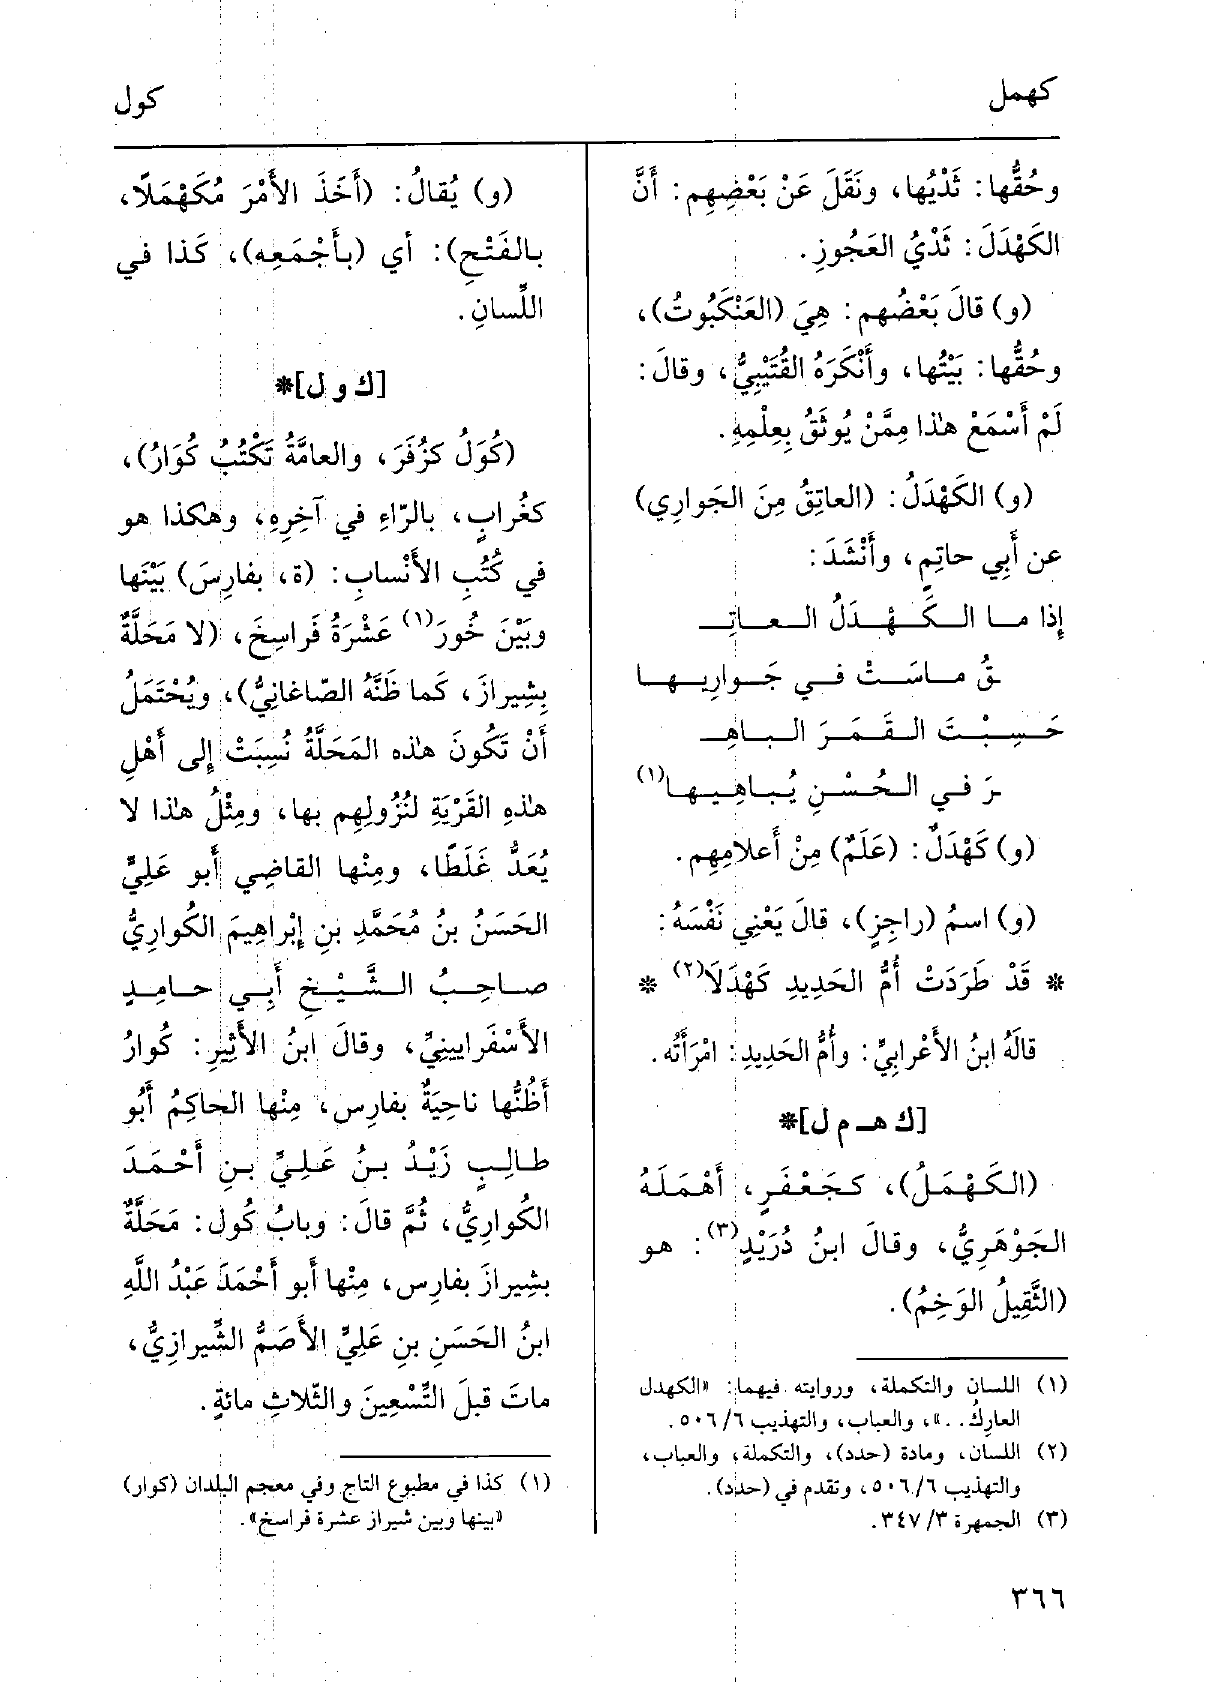 كهمل
كول
وحُقُّها: ثَدْيُها، ونَقَلَ عَنْ بَعْضِهِم: أَنَّ
الكَهْدَلَ: ثَدْيُ العَجُوزِ.
(و) قالَ بَعْضُهم: هِيَ (العَنْكَبُوتُ)،
وحُقُّها: بَيْتُها، وأَنْكَرَهُ القُتَيْبِيُّ، وقالَ:
لَمْ أَسْمَعْ هٰذا مِمَّنْ يُوثَقُ بِعِلْمِهِ.
(و) الكَهْدَلُ: (العاتِقُ مِنَ الجَوارِي)
عن أَبِي حاتِمٍ، وأَنْشَدَ:
إِذا مـا الـكَـهْـدَلُ الـعـاتِـ
ـقُ مـاسَـتْ فـي جَـوارِيـهـا
حَـسِـبْـتَ الـقَـمَـرَ الـبـاهِـ
ـرَ فـي الـحُـسْـنِ يُـبـاهِـيـهـا(١)
(و) كَهْدَلٌ: (عَلَمٌ) مِنْ أَعلامِهِم.
(و) اسمُ (راجِزٍ)، قالَ يَعْنِي نَفْسَهُ:
* قَدْ طَرَدَتْ أُمُّ الحَدِيدِ كَهْدَلَا(٢) *
قالَهُ ابنُ الأَعْرابِيِّ: وأُمُّ الحَدِيدِ: امْرَأَتُه.
[ك هـ م ل]*
(الكَهْمَلُ)، كجَعْفَرٍ، أَهْمَلَهُ
الجَوْهَرِيُّ، وقالَ ابنُ دُرَيْدٍ(٣): هو
(الثَّقِيلُ الوَخِمُ).
(١) اللسان والتكملة، وروايته فيهما: «الكهدل
العارِكُ..»، والعباب، والتهذيب ٥٠٦/٦.
(٢) اللسان، ومادة (حدد)، والتكملة، والعباب،
والتهذيب ٥٠٦/٦، وتقدم في (حدد).
(٣) الجمهرة ٣٤٧/٣.
(و) يُقالُ: (أَخَذَ الأَمْرَ مُكَهْمَلًا،
بالفَتْحِ): أي (بأَجْمَعِه)، كَذا في
اللِّسانِ.
[ك و ل]*
(كُوَلُ كزُفَرَ، والعامَّةُ تَكْتُبُ كُوَارُ)،
كغُرابٍ، بالرّاءِ في آخِرِهِ، وهكذا هو
في كُتُبِ الأَنْسابِ: (ة، بفارِسَ) بَيْنَها
وبَيْنَ خُورَ(١) عَشْرَةُ فَراسِخَ، (لا مَحَلَّةٌ
بِشِيرازَ، كَما ظَنَّهُ الصّاغانِيُّ)، ويُحْتَمَلُ
أَنْ تَكُونَ هٰذه المَحَلَّةُ نُسِبَتْ إلى أَهْلِ
هٰذهِ القَرْيَةِ لنُزُولِهِم بها، ومِثْلُ هٰذا لا
يُعَدُّ غَلَطًا، ومِنْها القاضِي أَبو عَلِيٍّ
الحَسَنُ بنُ مُحَمَّدِ بنِ إِبْراهِيمَ الكُوارِيُّ
صـاحِـبُ الـشَّـيْـخِ أَبِـي حـامِـدٍ
الأَسْفَرايينِيِّ، وقالَ ابنُ الأَثِيرِ: كُوارُ
أَظُنُّها ناحِيَةٌ بفارِس، مِنْها الحاكِمُ أَبُو
طـالِـبٍ زَيْـدُ بـنُ عَـلِـيِّ بـنِ أَحْـمَـدَ
الكُوارِيُّ، ثُمَّ قالَ: وبابُ كُول: مَحَلَّةٌ
بشِيرازَ بفارِس، مِنْها أبو أَحْمَدَ عَبْدُ اللَّهِ
ابنُ الحَسَنِ بنِ عَلِيٍّ الأَصَمُّ الشِّيرازِيُّ،
ماتَ قبلَ التِّسْعِينَ والثّلاثِ مائةٍ.
(١) كذا في مطبوع التاج وفي معجم البلدان (كوار)
«بينها وبين شيراز عشرة فراسخ».
٣٦٦